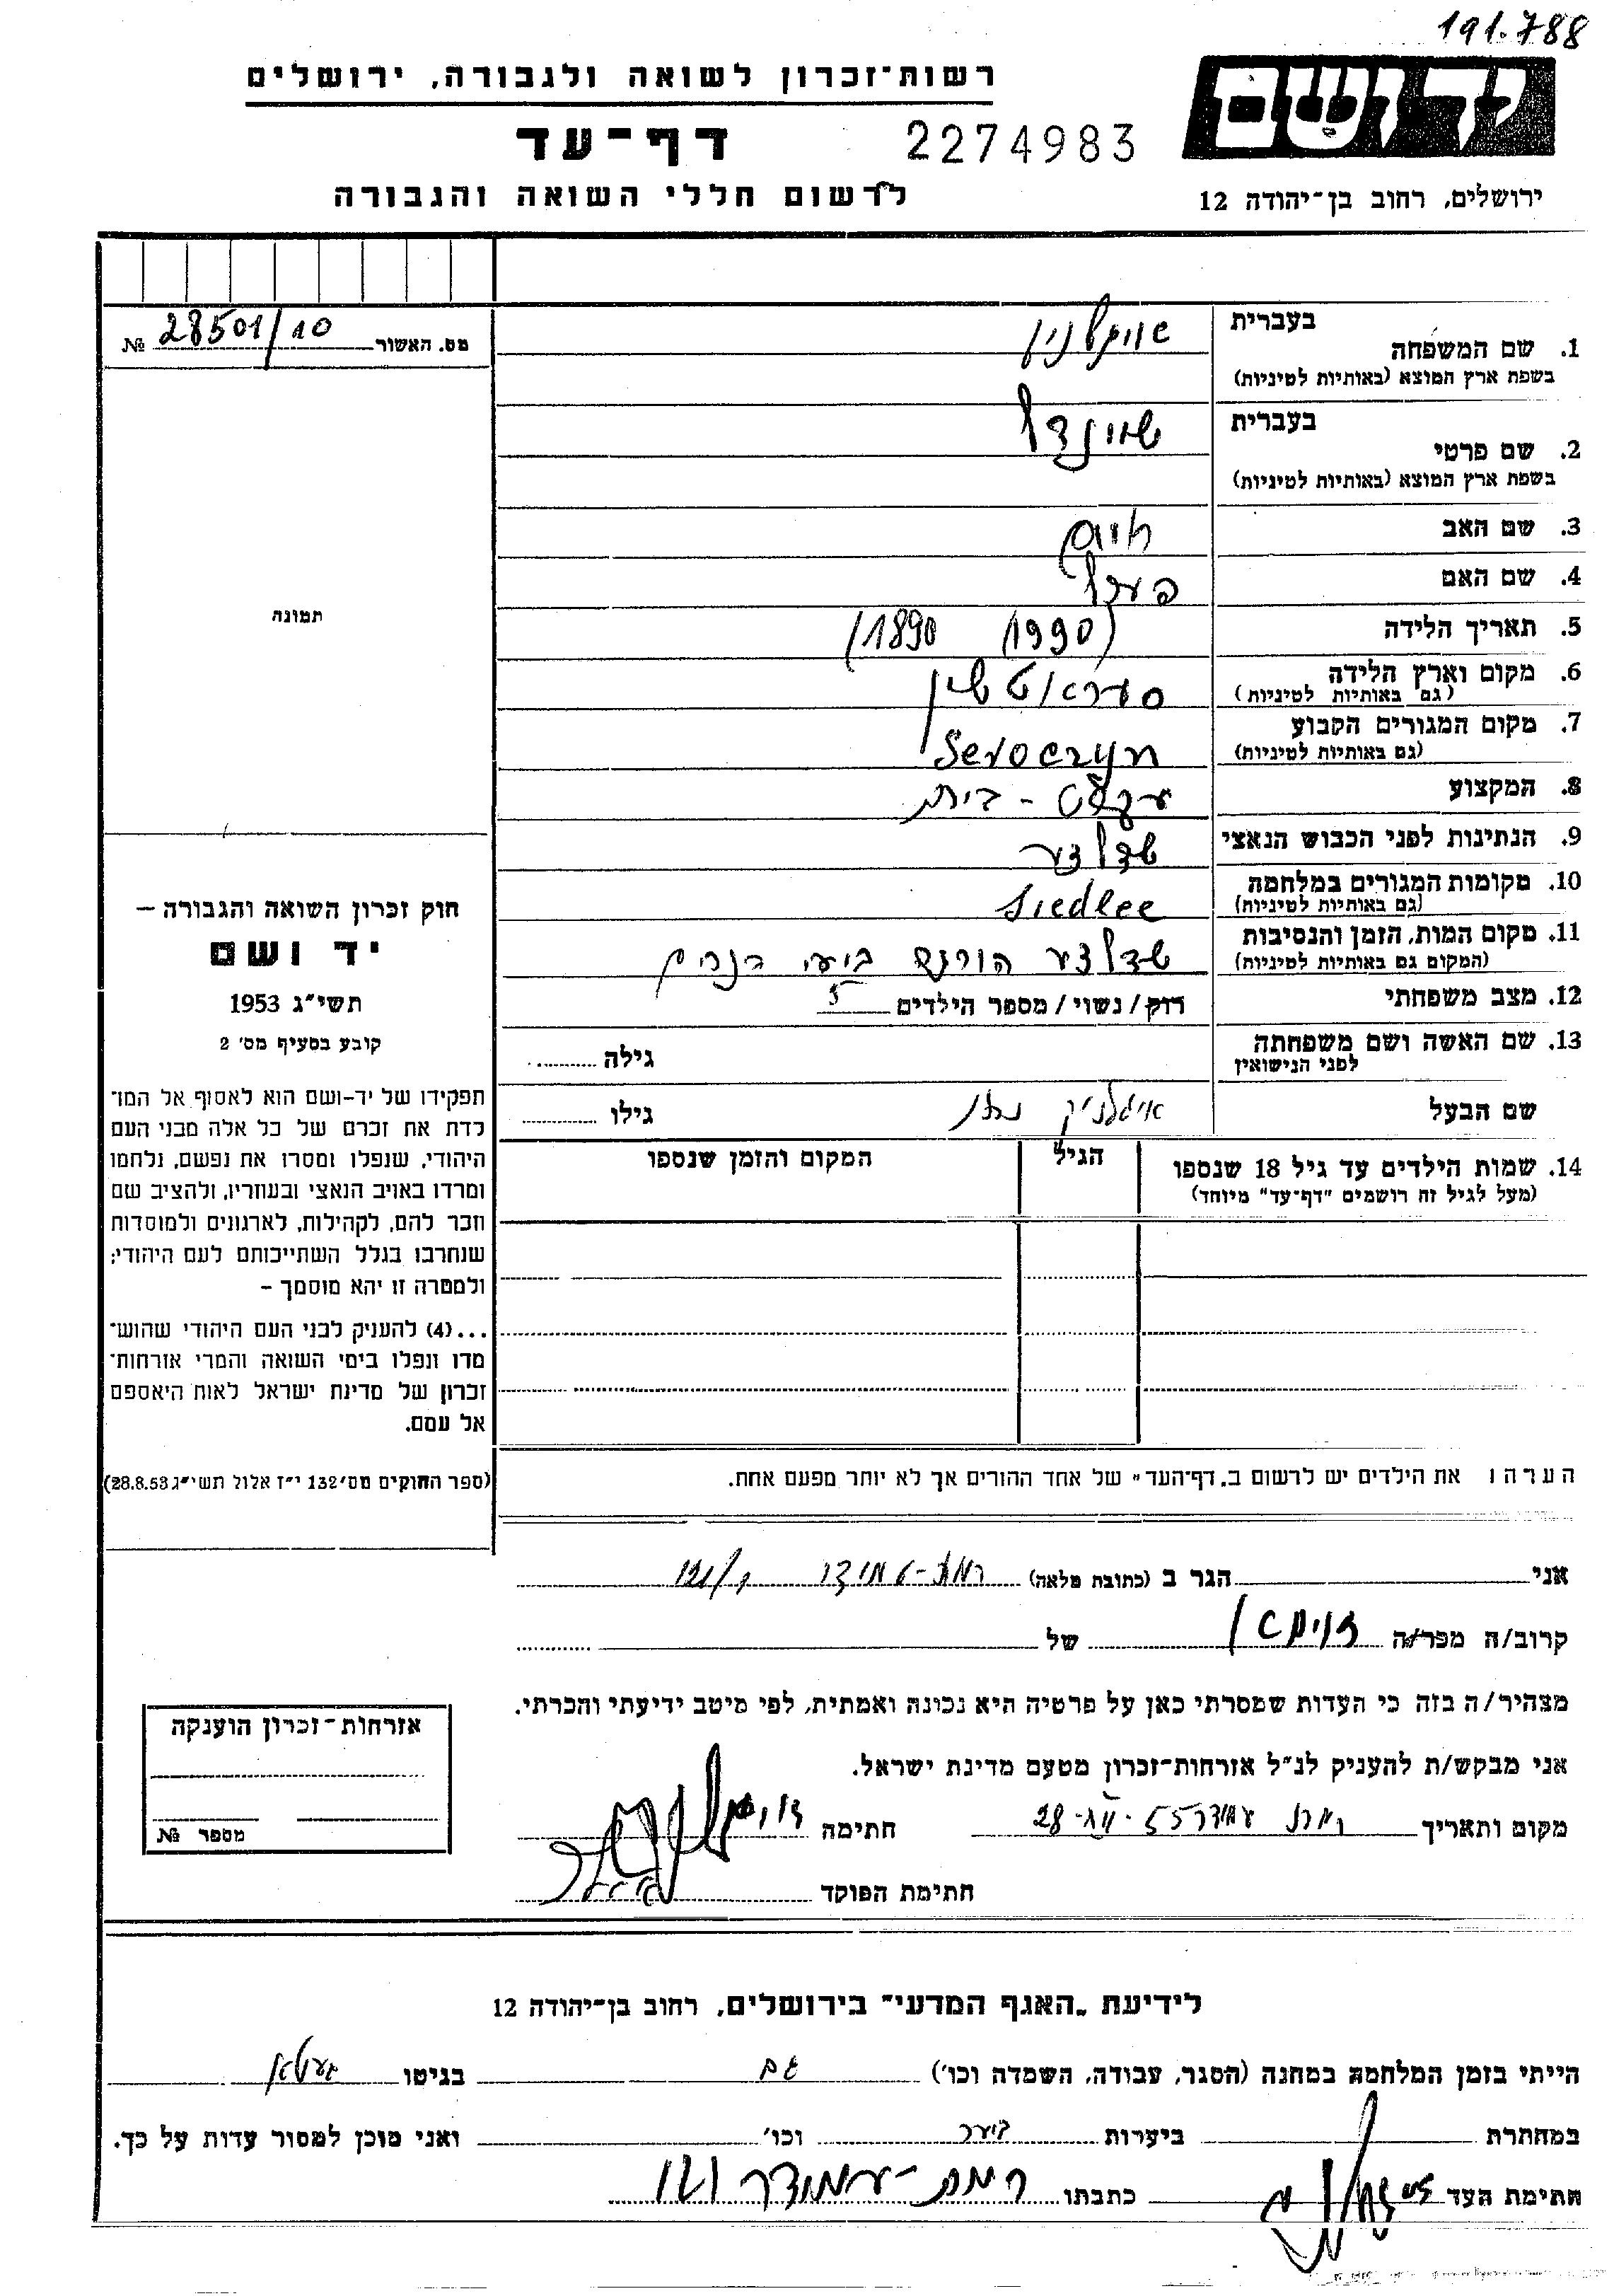 191.788
רשות־זכרון לשואה ולגבורה, ירושלים
יד ושם
דף־עד
2274983
לרשום חללי השואה והגבורה
ירושלים, רחוב בן־יהודה 12
מס. האשור 28501/10 №
בעברית
1. שם המשפחה
בשפת ארץ המוצא (באותיות לטיניות)
בעברית
2. שם פרטי שיינדל
בשפת ארץ המוצא (באותיות לטיניות)
3. שם האב חיים
4. שם האם
5. תאריך הלידה (1990) 1890
6. מקום וארץ הלידה
(גם באותיות לטיניות)
7. מקום המגורים הקבוע Seroczyn
(גם באותיות לטיניות)
8. המקצוע עקרת - בית
9. הנתינות לפני הכבוש הנאצי שדלצע
10. מקומות המגורים במלחמה Siedlce
(גם באותיות לטיניות)
11. מקום המות, הזמן והנסיבות שדלצע הורגם בידי
(המקום גם באותיות לטיניות)
12. מצב משפחתי רוק / נשוי / מספר הילדים 5
13. שם האשה ושם משפחתה גילה
לפני הנישואין
שם הבעל גילו
14. שמות הילדים עד גיל 18 שנספו הגיל המקום והזמן שנספו
(מעל לגיל זה רושמים "דף־עד" מיוחד)
תמונה
חוק זכרון השואה והגבורה —
יד ושם
תשי"ג 1953
קובע בסעיף מס׳ 2
תפקידו של יד-ושם הוא לאסוף אל המו־
לדת את זכרם של כל אלה מבני העם
היהודי, שנפלו ומסרו את נפשם, נלחמו
ומרדו באויב הנאצי ובעוזריו, ולהציב שם
וזכר להם, לקהילות, לארגונים ולמוסדות
שנחרבו בגלל השתייכותם לעם היהודי;
ולמטרה זו יהא מוסמך —
...(4) להעניק לבני העם היהודי שהוש־
מדו ונפלו בימי השואה והמרי אזרחות־
זכרון של מדינת ישראל לאות היאספם
אל עמם.
(ספר החוקים מס׳ 132 י"ז אלול תשי"ג 28.8.53)
הערה: את הילדים יש לרשום ב"דף־העד" של אחד ההורים אך לא יותר מפעם אחת.
אני הגר ב (כתובת מלאה)
קרוב/ה מכר/ה של
מצהיר/ה בזה כי העדות שמסרתי כאן על פרטיה היא נכונה ואמתית, לפי מיטב ידיעתי והכרתי.
אני מבקש/ת להעניק לנ"ל אזרחות־זכרון מטעם מדינת ישראל.
מקום ותאריך חתימה
חתימת הפוקד
אזרחות־זכרון הוענקה
מספר №
לידיעת "האגף המדעי" בירושלים, רחוב בן־יהודה 12
הייתי בזמן המלחמה במחנה (הסגר, עבודה, השמדה וכו׳) בגיטו
במחתרת ביערות וכו׳ ואני מוכן למסור עדות על כך.
חתימת העד כתבתו